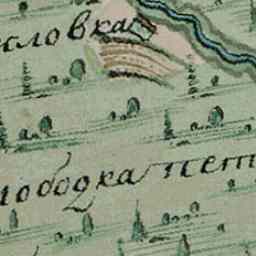 словка
лободка пет